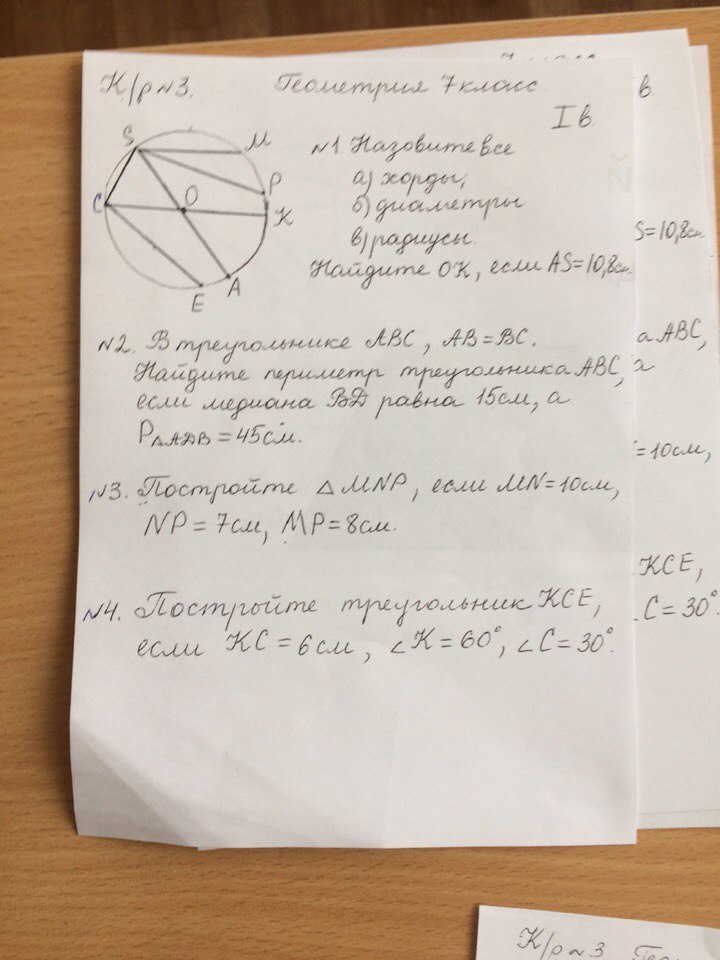 К/р №3. Геометрия 7 класс
I в.
S
М
Р
О
С
К
Е
А
№1 Назовите все
а) хорды;
б) диаметры
в) радиусы.
Найдите ОК, если AS=10,8см
№2. В треугольнике АВС, АВ=ВС.
Найдите периметр треугольника АВС,
если медиана ВД равна 15см, а
P△АДВ = 45см.
№3. Постройте △MNP, если MN=10см,
NP = 7см, MP = 8см.
№4. Постройте треугольник КСЕ,
если КС = 6см, ∠К = 60°, ∠С = 30°.
в.
S=10,8см
а АВС,
а
=10см,
КСЕ,
∠С = 30°.
К/р №3